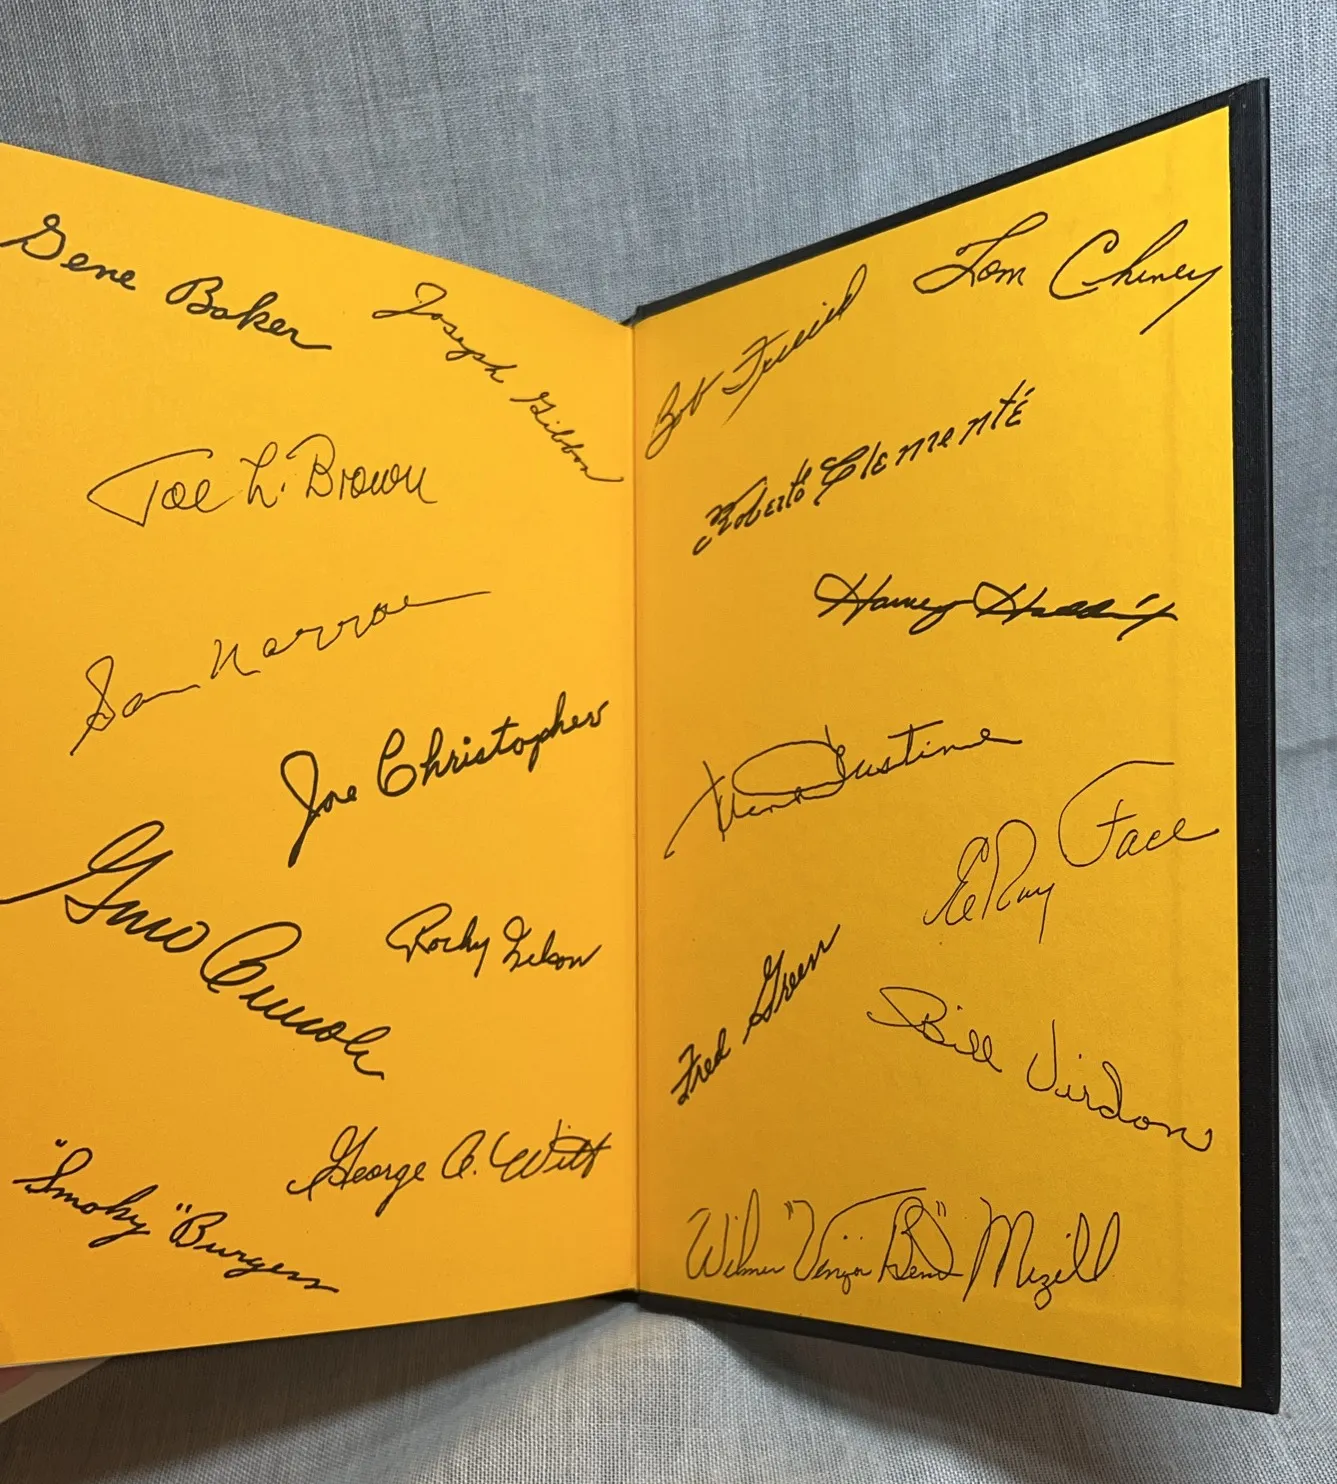 Gene Baker
Joseph Gibbon
Joe L. Brown
Sam Narron
Joe Christopher
Gino Cimoli
Rocky Nelson
George A. Witt
"Smoky" Burgess
Tom Cheney
Bob Friend
Roberto Clemente
Harvey Haddix
Vera Justine
ElRoy Face
Fred Green
Bill Virdon
Wilmer "Vinegar Bend" Mizell